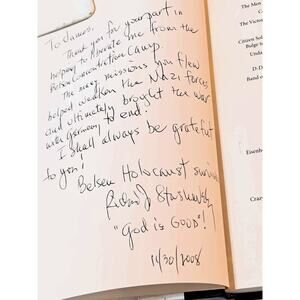 To James,
Thank you for your part in
helping to liberate me from the
Belsen Concentration Camp.
The many missions you flew
helped weaken the Nazi forces
and ultimately brought the war
with Germany to end!
I shall always be grateful
to you!
Belsen Holocaust
"God is GOOD"!
11/30/2008
The Men
The Victor
Citizen Sold
Bulge to
Unda
D-D
Band o
Eisenho
Craz